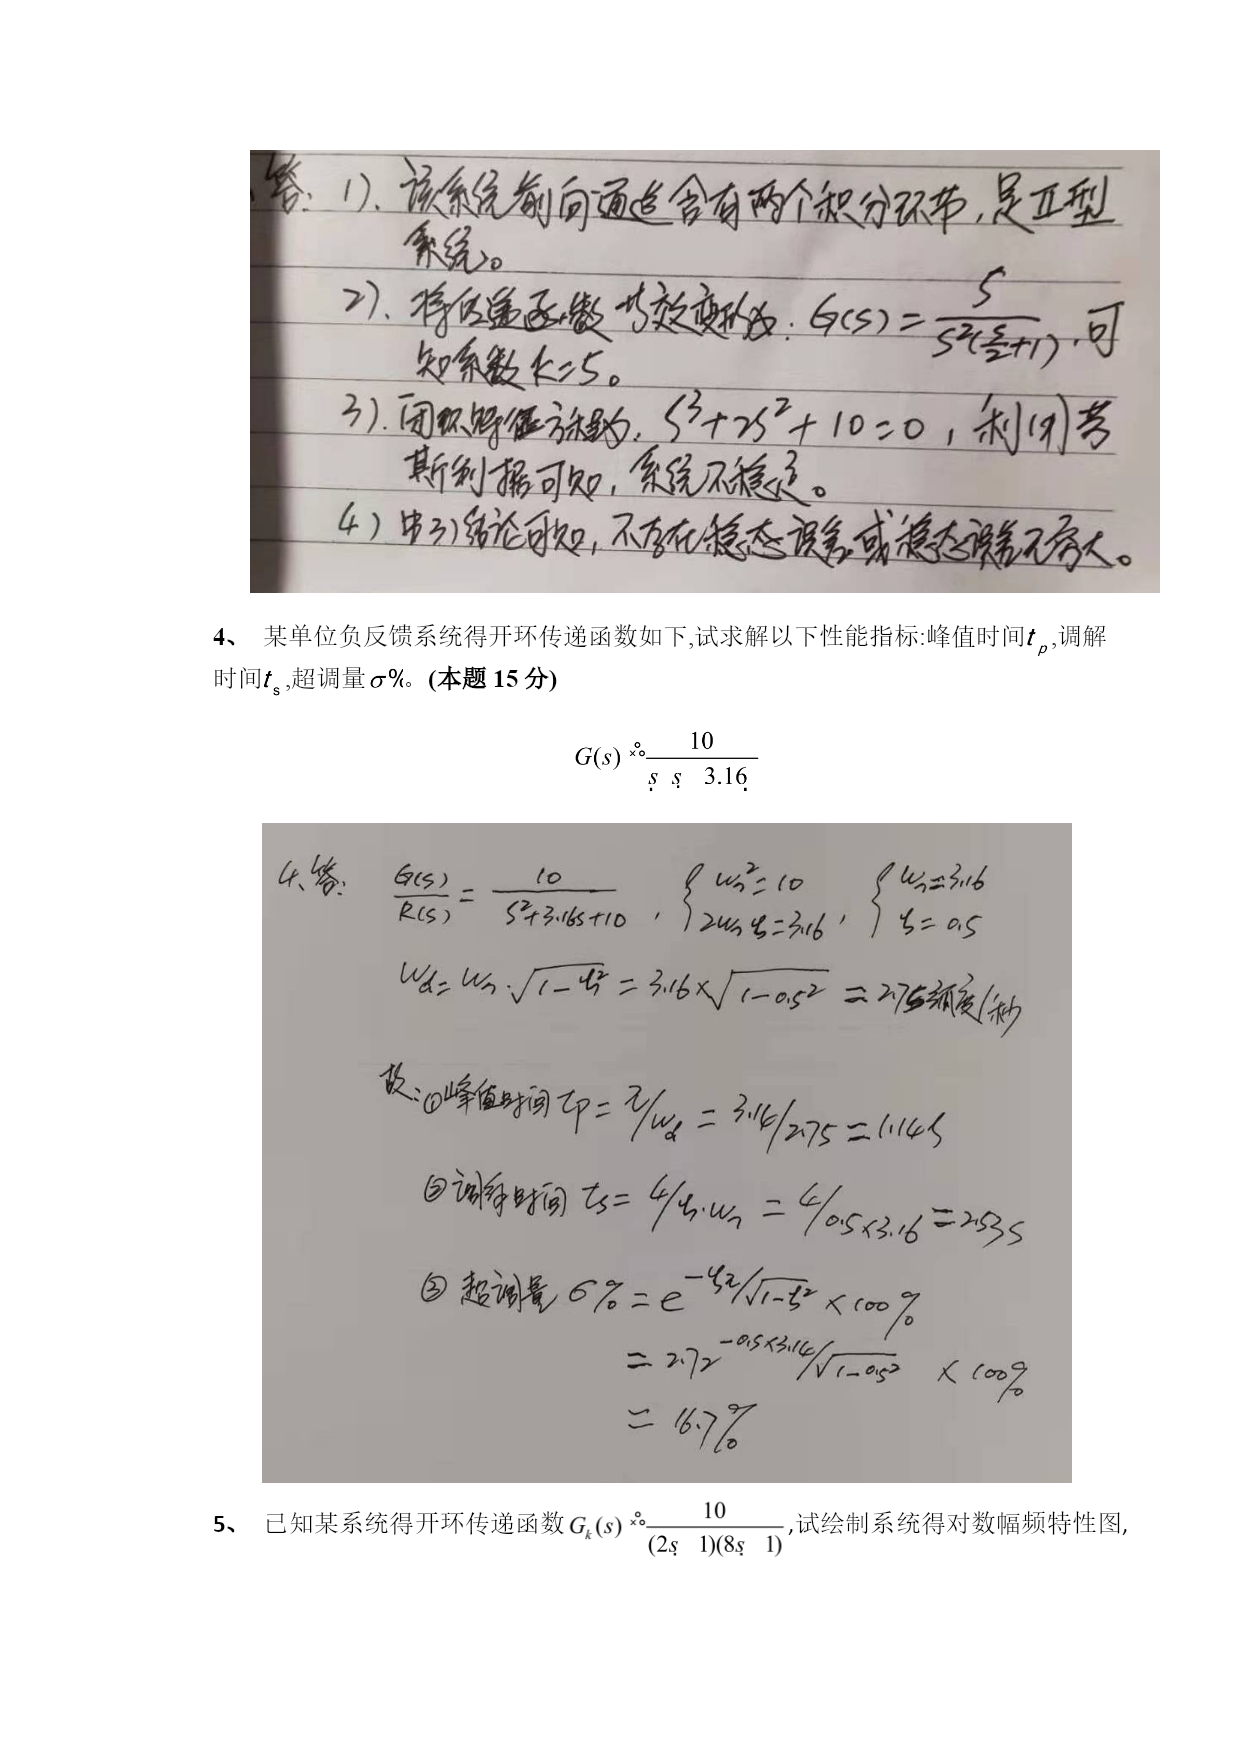 答: 1)、该系统前向通道含有两个积分环节,是Ⅱ型
系统。
2)、将传递函数等效变形为: G(s) = 5/(s²(s/2+1)),可
知系数 k=5。
3)、闭环特征方程为, S³+2S²+10=0, 利用劳
斯判据可知, 系统不稳定。
4) 由3)结论可知, 不存在稳态误差或稳态误差无穷大。
4、 某单位负反馈系统得开环传递函数如下,试求解以下性能指标:峰值时间tp,调解
时间ts,超调量σ%。(本题 15 分)
G(s) 10/(s s 3.16)
4、答: G(s)/R(s) = 10/(s²+3.16s+10) , { ωn²=10 2ωnξ=3.16 , { ωn=3.16 ξ=0.5
ωd=ωn·√(1-ξ²) = 3.16×√(1-0.5²) = 2.75弧度/秒
故: ①峰值时间 tp = π/ωd = 3.14/2.75 = 1.14s
②调解时间 ts = 4/ξ·ωn = 4/0.5×3.16 = 2.53s
③ 超调量 σ% = e^(-ξπ/√(1-ξ²)) ×100%
= 2.72^(-0.5×3.14/√(1-0.5²)) ×100%
= 16.7%
5、 已知某系统得开环传递函数Gk(s) 10/((2s 1)(8s 1)),试绘制系统得对数幅频特性图,